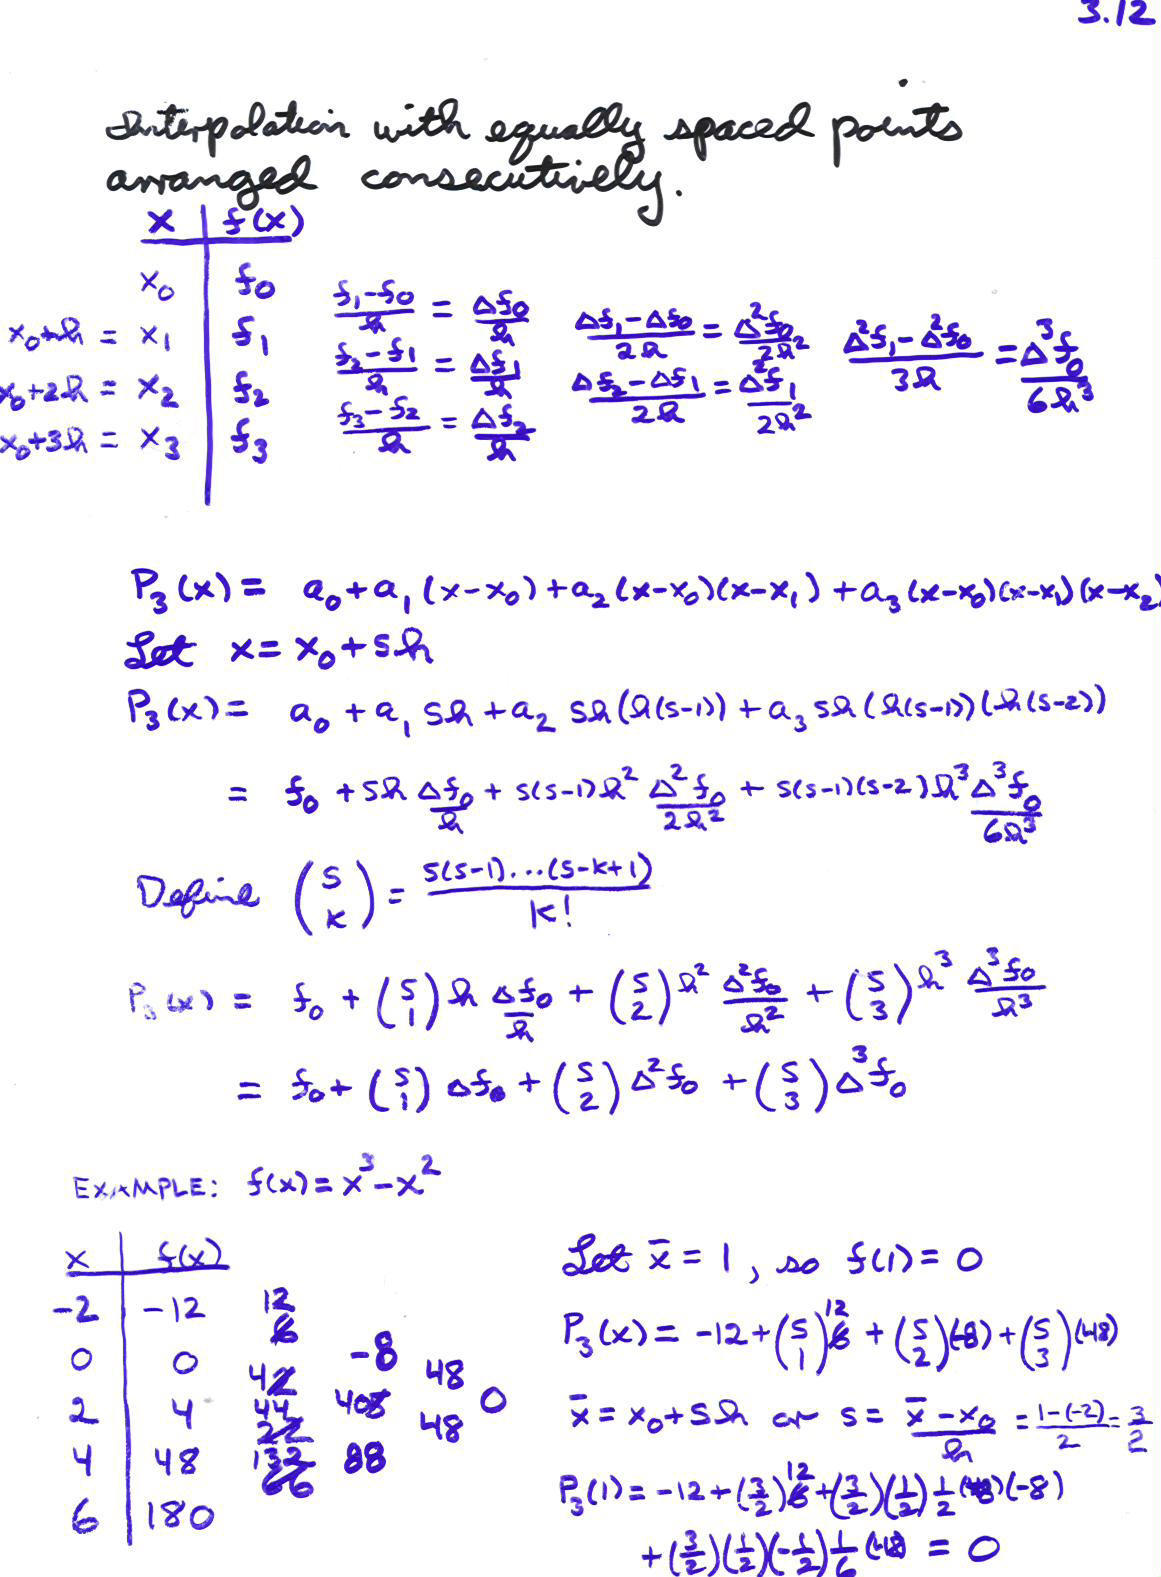 3.12
Interpolation with equally spaced points
arranged consecutively.
x | f(x)
x₀ | f₀
x₀+h = x₁ | f₁
x₀+2h = x₂ | f₂
x₀+3h = x₃ | f₃
(f₁-f₀)/h = Δf₀/h
(f₂-f₁)/h = Δf₁/h
(f₃-f₂)/h = Δf₂/h
(Δf₁-Δf₀)/2h = Δ²f₀/2h²
(Δf₂-Δf₁)/2h = Δ²f₁/2h²
(Δ²f₁-Δ²f₀)/3h = Δ³f₀/6h³
P₃(x) = a₀+a₁(x-x₀)+a₂(x-x₀)(x-x₁)+a₃(x-x₀)(x-x₁)(x-x₂)
Let x = x₀+sh
P₃(x) = a₀ + a₁ sh + a₂ sh(h(s-1)) + a₃ sh(h(s-1))(h(s-2))
= f₀ + sh Δf₀/h + s(s-1)h² Δ²f₀/2h² + s(s-1)(s-2)h³ Δ³f₀/6h³
Define (s k) = s(s-1)...(s-k+1)/k!
P₃(x) = f₀ + (s 1) h Δf₀/h + (s 2) h² Δ²f₀/h² + (s 3) h³ Δ³f₀/h³
= f₀ + (s 1) Δf₀ + (s 2) Δ²f₀ + (s 3) Δ³f₀
EXAMPLE: f(x) = x³-x²
x | f(x)
-2 | -12
0 | 0
2 | 4
4 | 48
6 | 180
12
4
44
132
-8
40
88
48
48
0
Let x̄ = 1, so f(1) = 0
P₃(x) = -12 + (s 1) 12 + (s 2)(-8) + (s 3)(48)
x̄ = x₀+sh or s = (x̄-x₀)/h = (1-(-2))/2 = 3/2
P₃(1) = -12 + (3/2) 12 + (3/2)(1/2) 1/2 (-8)
+ (3/2)(1/2)(-1/2) 1/6 (48) = 0